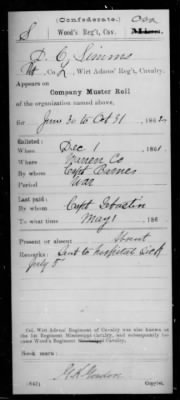 (Confederate.)
S Wood's Reg't, Cav. Miss.
D. C. Simms
Pvt, Co. L, Wirt Adams' Reg't, Cavalry.
Appears on
Company Muster Roll
of the organization named above,
for June 30 to Oct 31, 1862
Enlisted:
When Dec 1, 1861
Where Warren Co
By whom Capt Barnes
Period War
Last paid:
By whom Capt Sebastin
To what time May 1, 186
Present or absent Absent
Remarks: Sent to hospital sick
July 5
Col. Wirt Adams' Regiment of Cavalry was also known as
the 1st Regiment Mississippi Cavalry, and subsequently became
Wood's Regiment Mississippi Cavalry.
Book mark:
(642) Copyist.